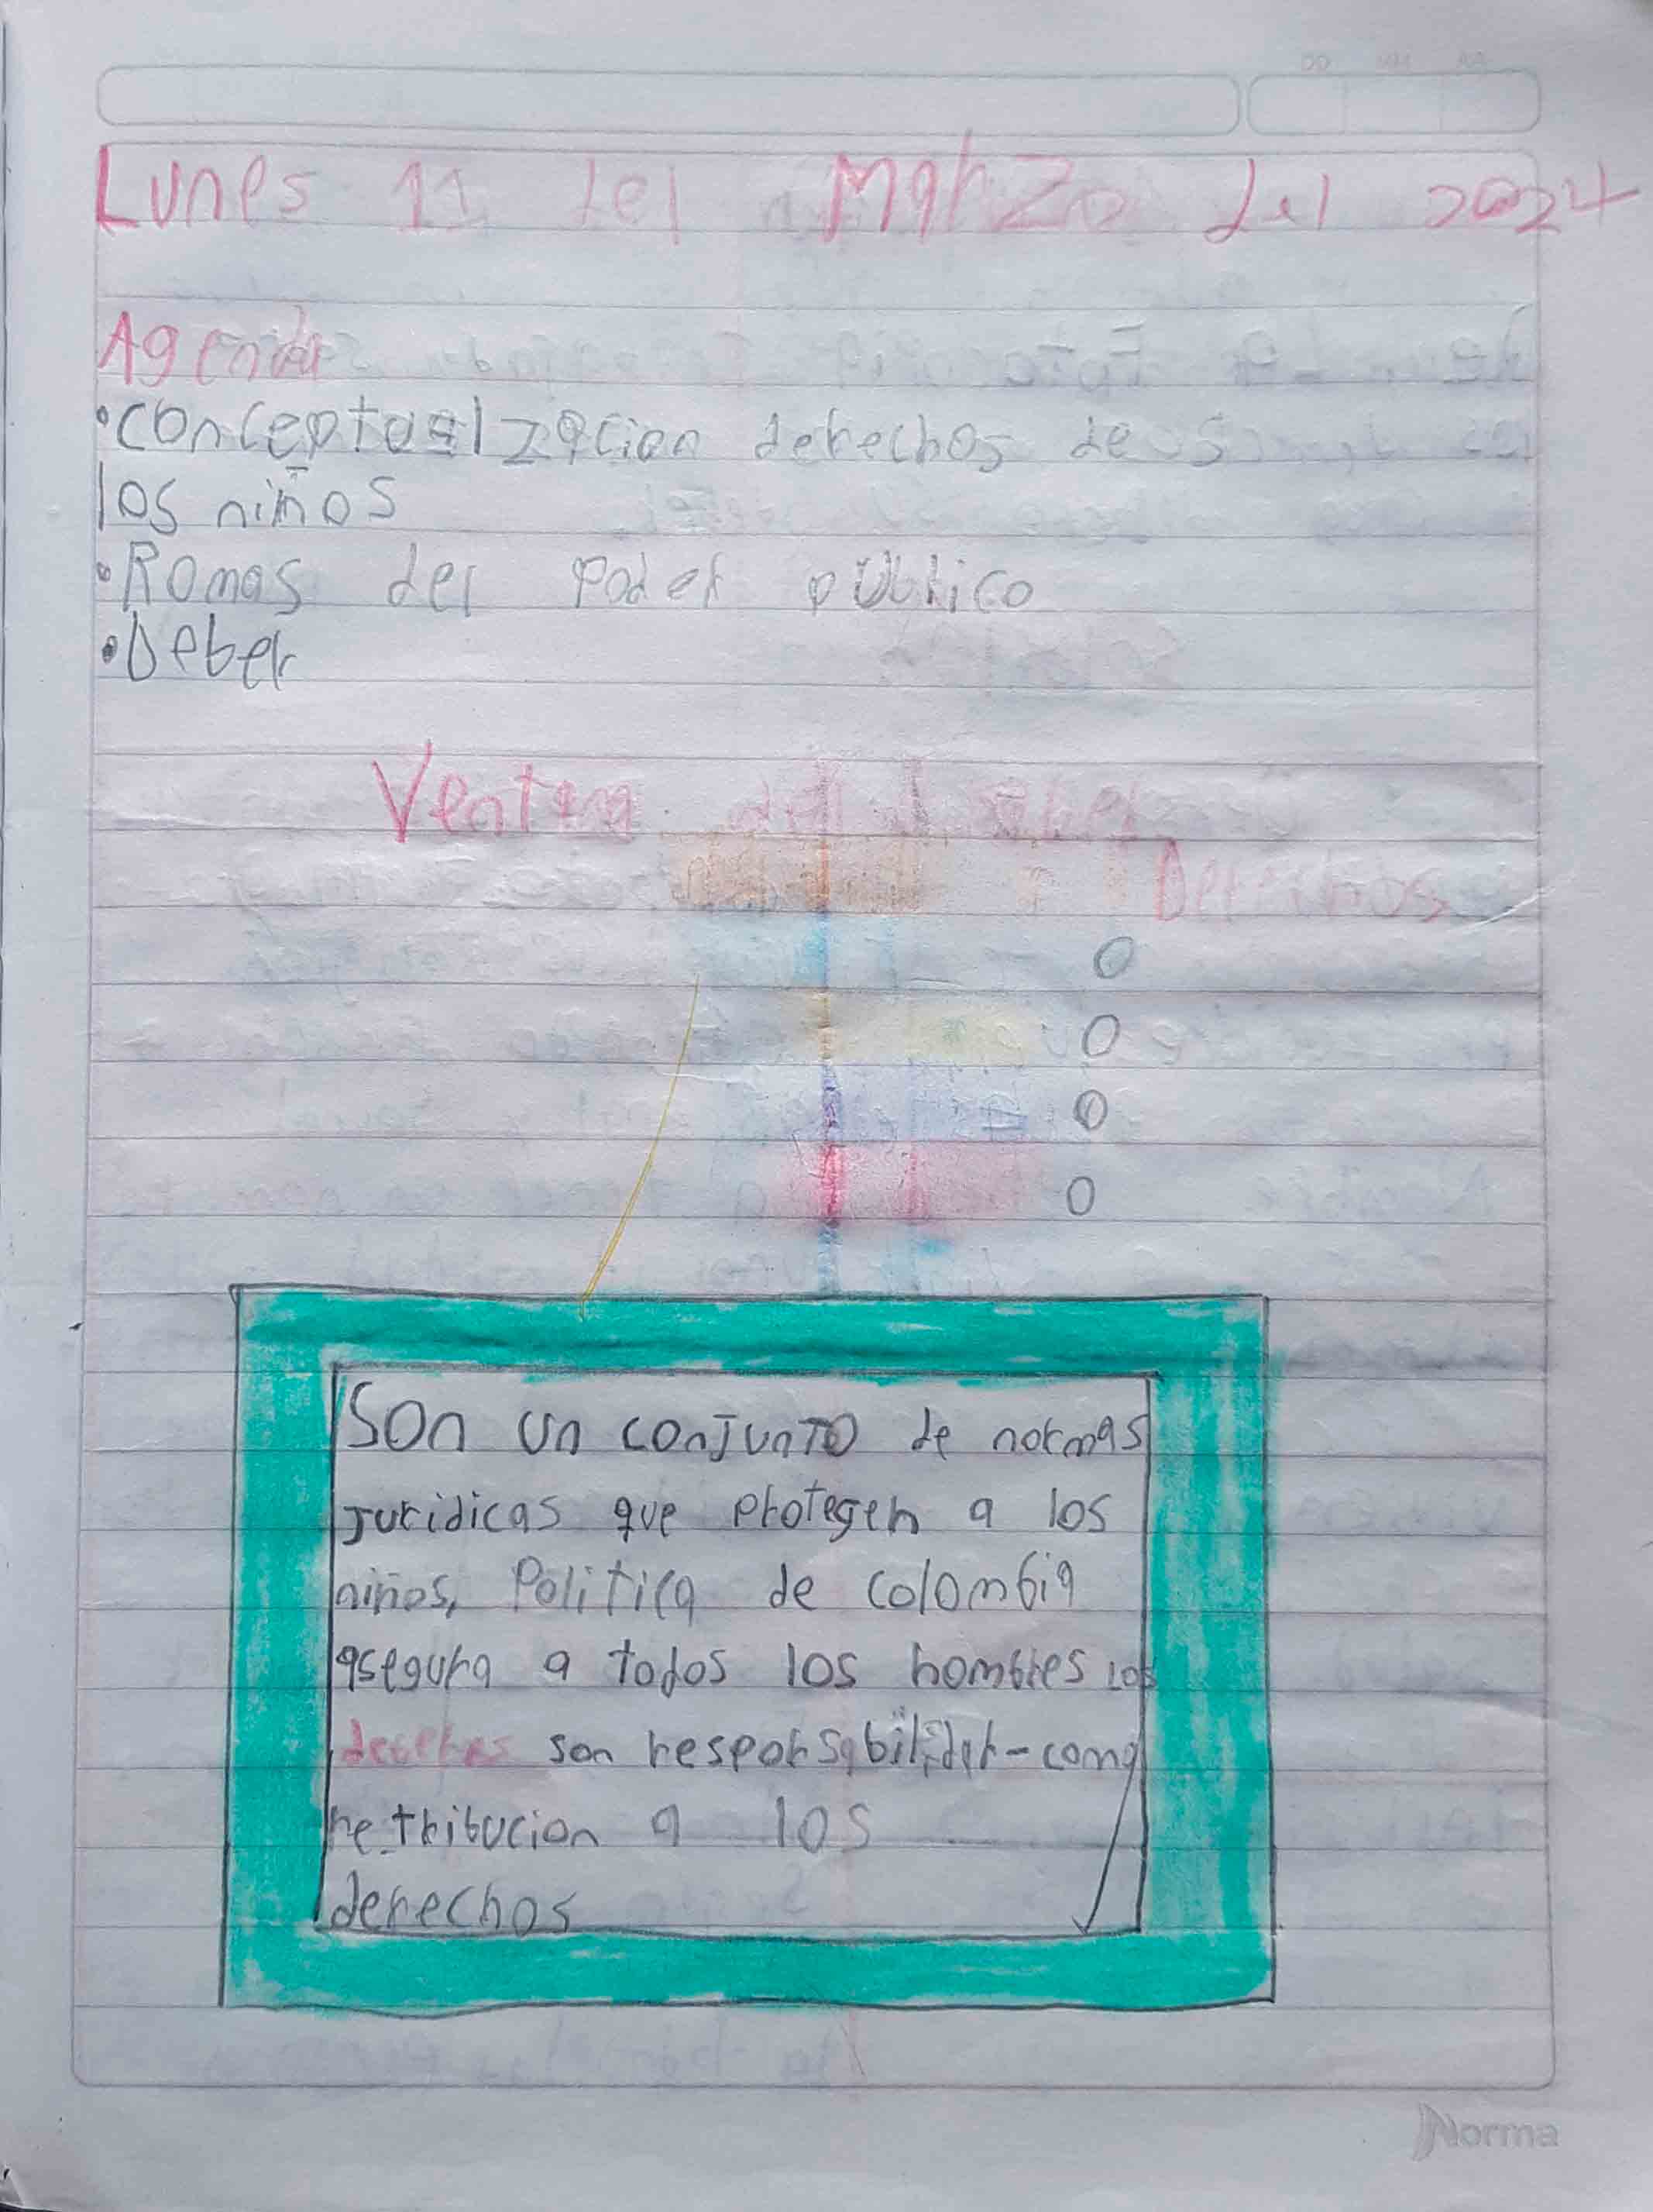 DD MM AA
Lunes 11 del Marzo del 2024
Agenda
•conceptualizacion derechos de
los niños
•Romas del Poder publico
•Deber
Ventana del saber
Derechos
0
0
0
0
Son un conJunTO de normas
Juridicas que protegen a los
niños, Politica de colombia
asegura a todos los hombres los
son
retribucion a los
derechos
Norma